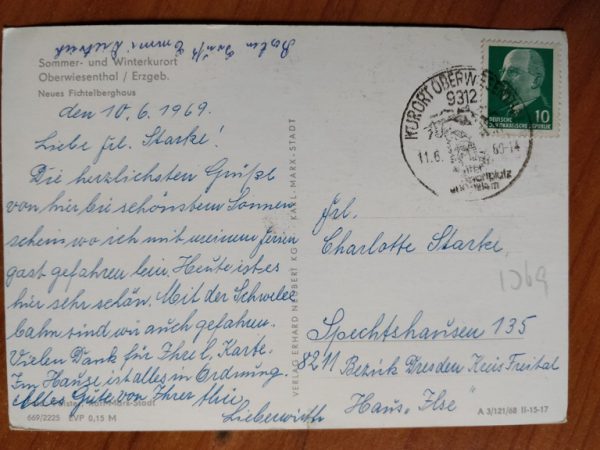 Sommer- und Winterkurort
Oberwiesenthal / Erzgeb.
Neues Fichtelberghaus
den 10.6.1969.
Liebe Frl. Starke!
Die herzlichsten Grüße
von hier bei schönstem Sonnen
schein, wo ich mit meinem Ferien
gast gefahren bin. Heute ist es
hier sehr schön. Mit der Schwebe
bahn sind wir auch gefahren.
Vielen Dank für Ihre l. Karte.
Im Hause ist alles in Ordnung.
Alles Gute von Ihrer
Lieberwirth
669/2225 EVP 0,15 M
VERLAG ERHARD NEUBERT KG KARL-MARX-STADT
KURORT OBERW
9312
11.6. 69-14
10
DEUTSCHE
DEMOKRATISCHE REPUBLIK
Frl.
Charlotte Starke
1969
Spechtshausen 135
8211 Bezirk Dresden Kreis Freital
Haus „Ilse"
A 3/121/68 II-15-17